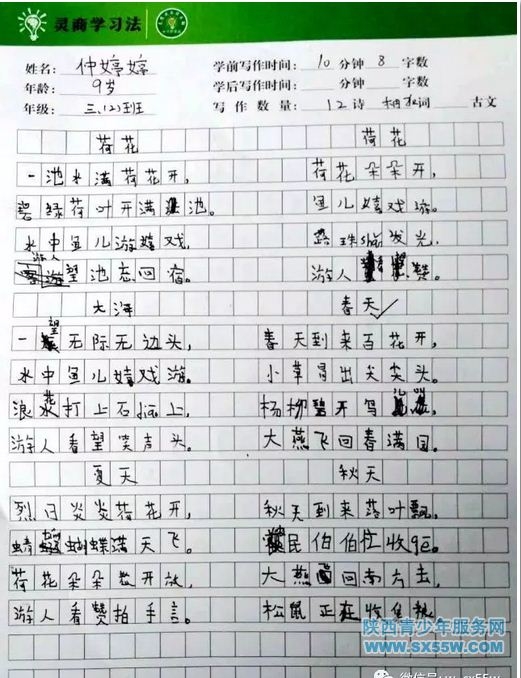 灵商学习法
姓名: 仲婷婷
学前写作时间: 10 分钟 8 字数
年龄: 9岁
学后写作时间: 分钟 字数
年级: 三、(2)班
写作数量: 12 诗 词 古文
荷花 荷花
一池水满荷花开, 荷花朵朵开,
碧绿荷叶开满池。 鱼儿嬉戏游。
水中鱼儿游嬉戏, 露珠shǎn发光,
游人望池忘回宿。 游人赞。
大海 春天
一望无际无边头, 春天到来百花开,
水中鱼儿嬉戏游。 小草冒出尖尖头。
浪花打上石jiāo上, 杨柳碧开
游人看望笑声头。 大燕飞回春满园。
夏天 秋天
烈日炎炎荷花开, 秋天到来落叶飘,
蜻蝴蝶满天飞。 民伯伯忙收
荷花朵朵开放, 大燕回南方去,
游人看赞拍手言。 松鼠正在收
陕西青少年服务网
www.sx55w.com
微信号: wx_sx55w